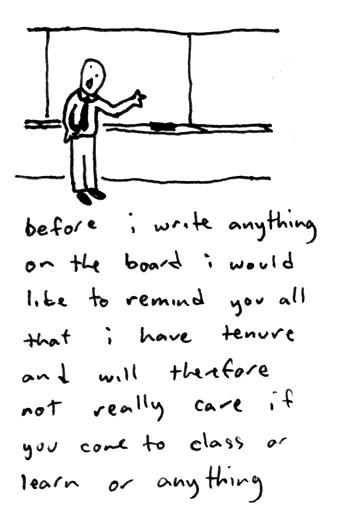 before i write anything
on the board i would
like to remind you all
that i have tenure
and will therefore
not really care if
you come to class or
learn or anything